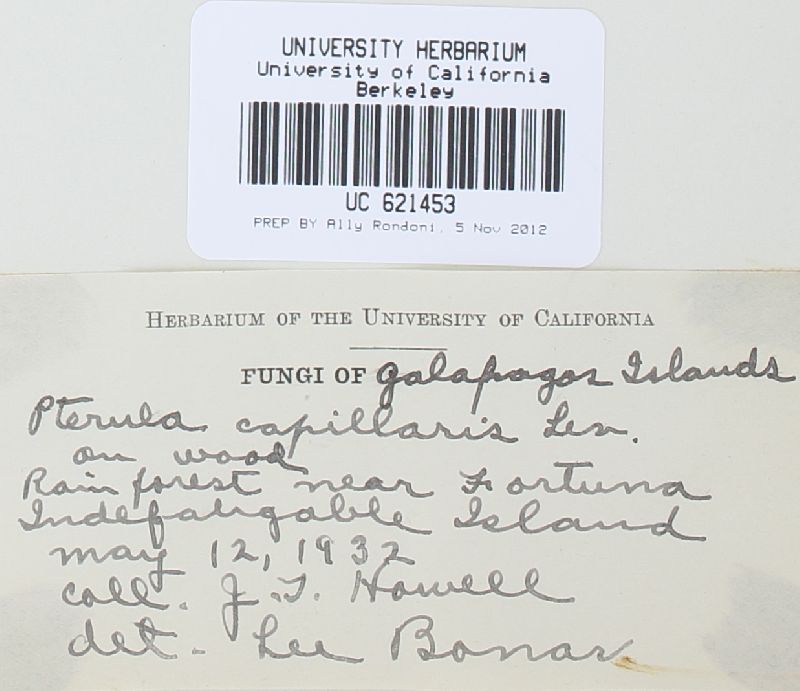 UNIVERSITY HERBARIUM
University of California
Berkeley
UC 621453
PREP BY Ally Rondoni, 5 Nov 2012
HERBARIUM OF THE UNIVERSITY OF CALIFORNIA
FUNGI OF Galapagos Islands
Pterula capillaris Lev.
on wood
Rain forest near Fortuna
Indefatigable Island
may 12, 1932
coll. J.T. Howell
det. Lee Bonar